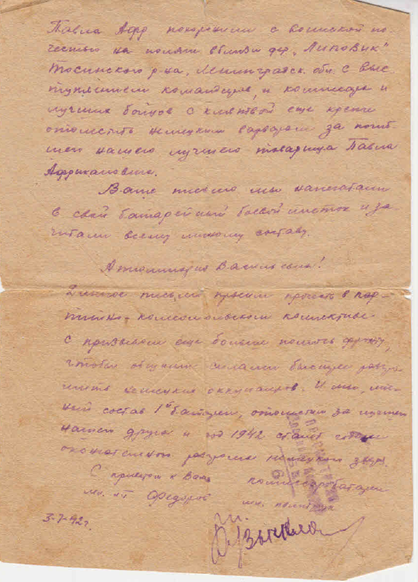 Павла Афр похоронили с воинской по-
честью на поляне вблизи дер. "Липовик"
Тосинского р-на, Ленинградск. обл с выс
туплением командиров, и комиссара и
лучших бойцов с клятвой еще крепче
отомстить немецким варварам за погиб
шего нашего лучшего товарища Павла
Африкановича.
Ваше письмо мы напечатали
в свой батарейный боевой листок и за
читали всему личному составу.
Васильевна!
Данное письмо просим прочесть в пар
тийно-комсомольском коллективе
с призывом еще больше помочь фронту,
чтобы общими силами быстрее разгро
мить немецких оккупантов. И мы, лич
ный состав 1ой батареи, отомстим за лучшего
нашего друга и год 1942 станет годом
окончательного разгрома немецкого зверя.
С приветом к Вам комиссар батареи
мл. п-т Федоров
3-7-42г.
ПРОСМОТРЕНО